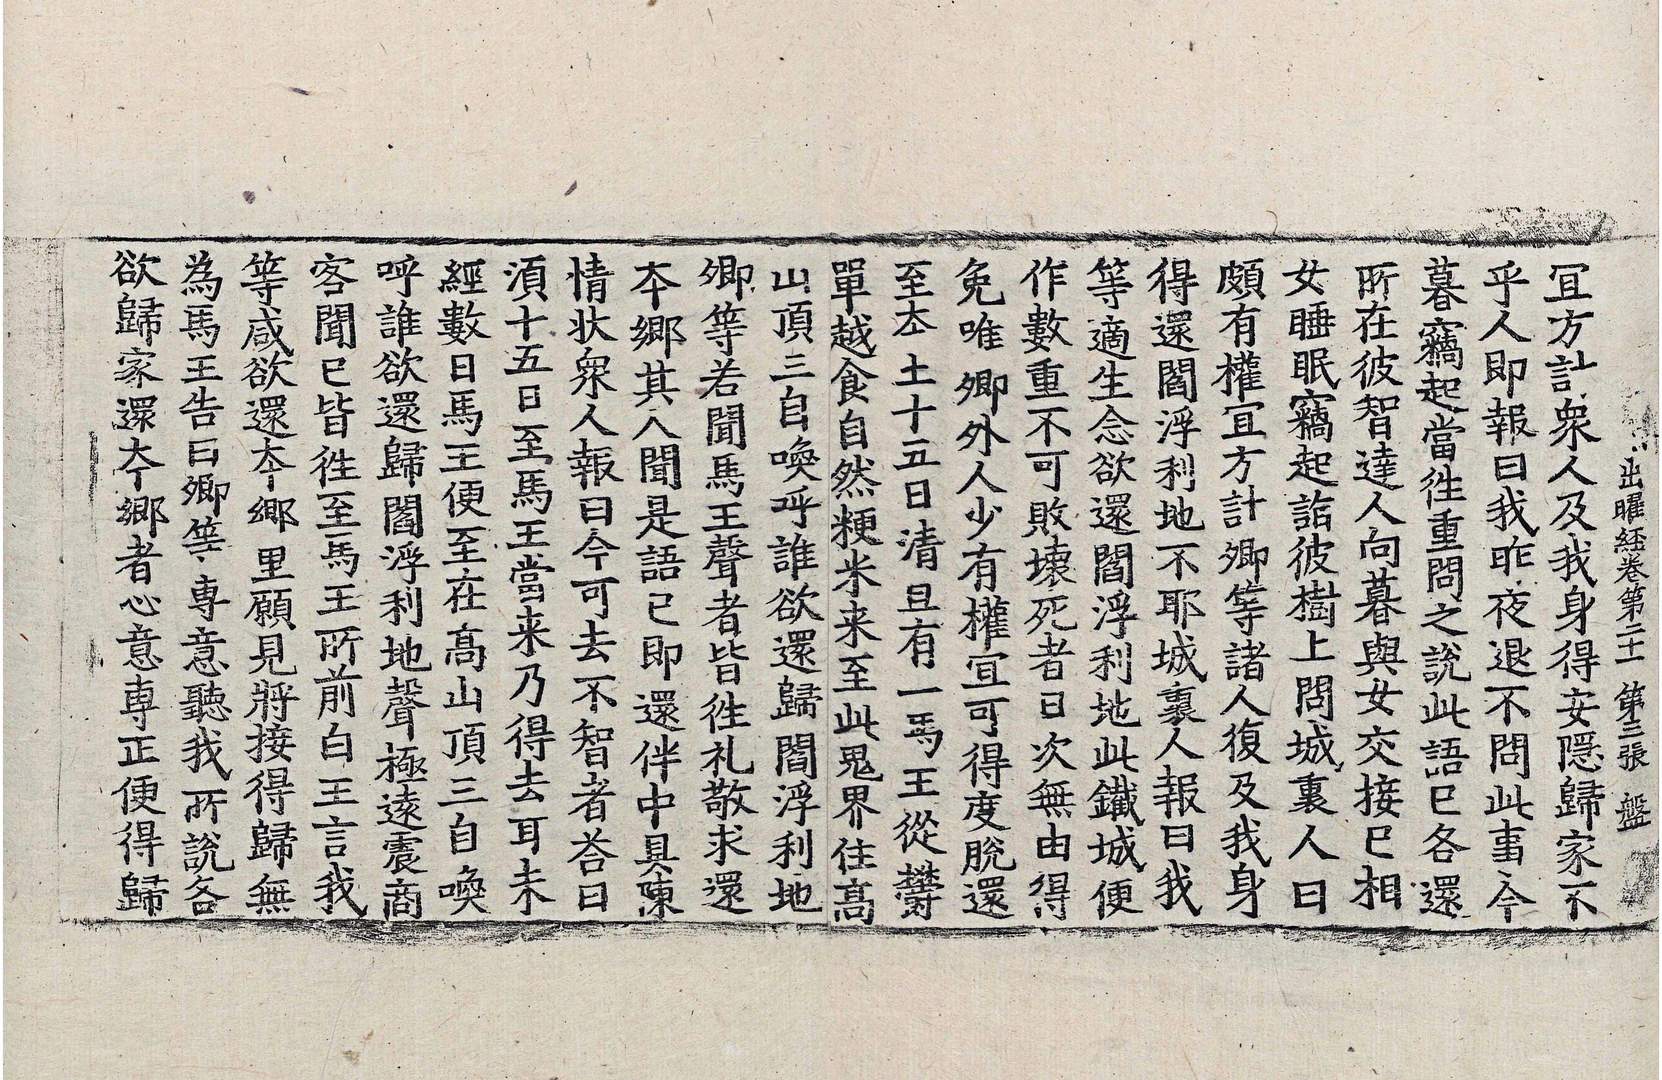 出曜経卷第二十一 第三張 盤
冝方計衆人及我身得安隱歸家不
乎人即報曰我昨夜退不問此事今
暮竊起當徃重問之說此語已各還
所在彼智達人向暮與女交接已相
女睡眠竊起詣彼樹上問城裏人曰
頗有權冝方計卿等諸人復及我身
得還閻浮利地不耶城裏人報曰我
等適生念欲還閻浮利地此鐵城便
作數重不可敗壞死者日次無由得
免唯卿外人少有權冝可得度脫還
至夲土十五日清旦有一馬王從欝
單越食自然粳米来至此鬼界住髙
山頂三自喚呼誰欲還歸閻浮利地
卿等若聞馬王聲者皆徃礼敬求還
夲鄉其人聞是語已即還伴中具陳
情状衆人報曰今可去不智者荅曰
湏十五日至馬王當来乃得去耳未
經數日馬王便至在髙山頂三自喚
呼誰欲還歸閻浮利地聲極遠震商
客聞已皆徃至馬王所前白王言我
等咸欲還夲鄉里願見將接得歸無
為馬王告曰卿等專意聽我所說各
欲歸家還夲鄉者心意專正便得歸